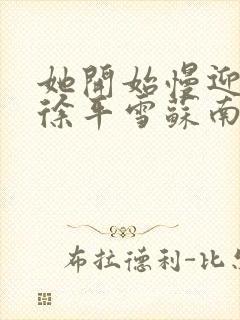 她開始慢迎
徐平雪蘇南
布拉德利-比